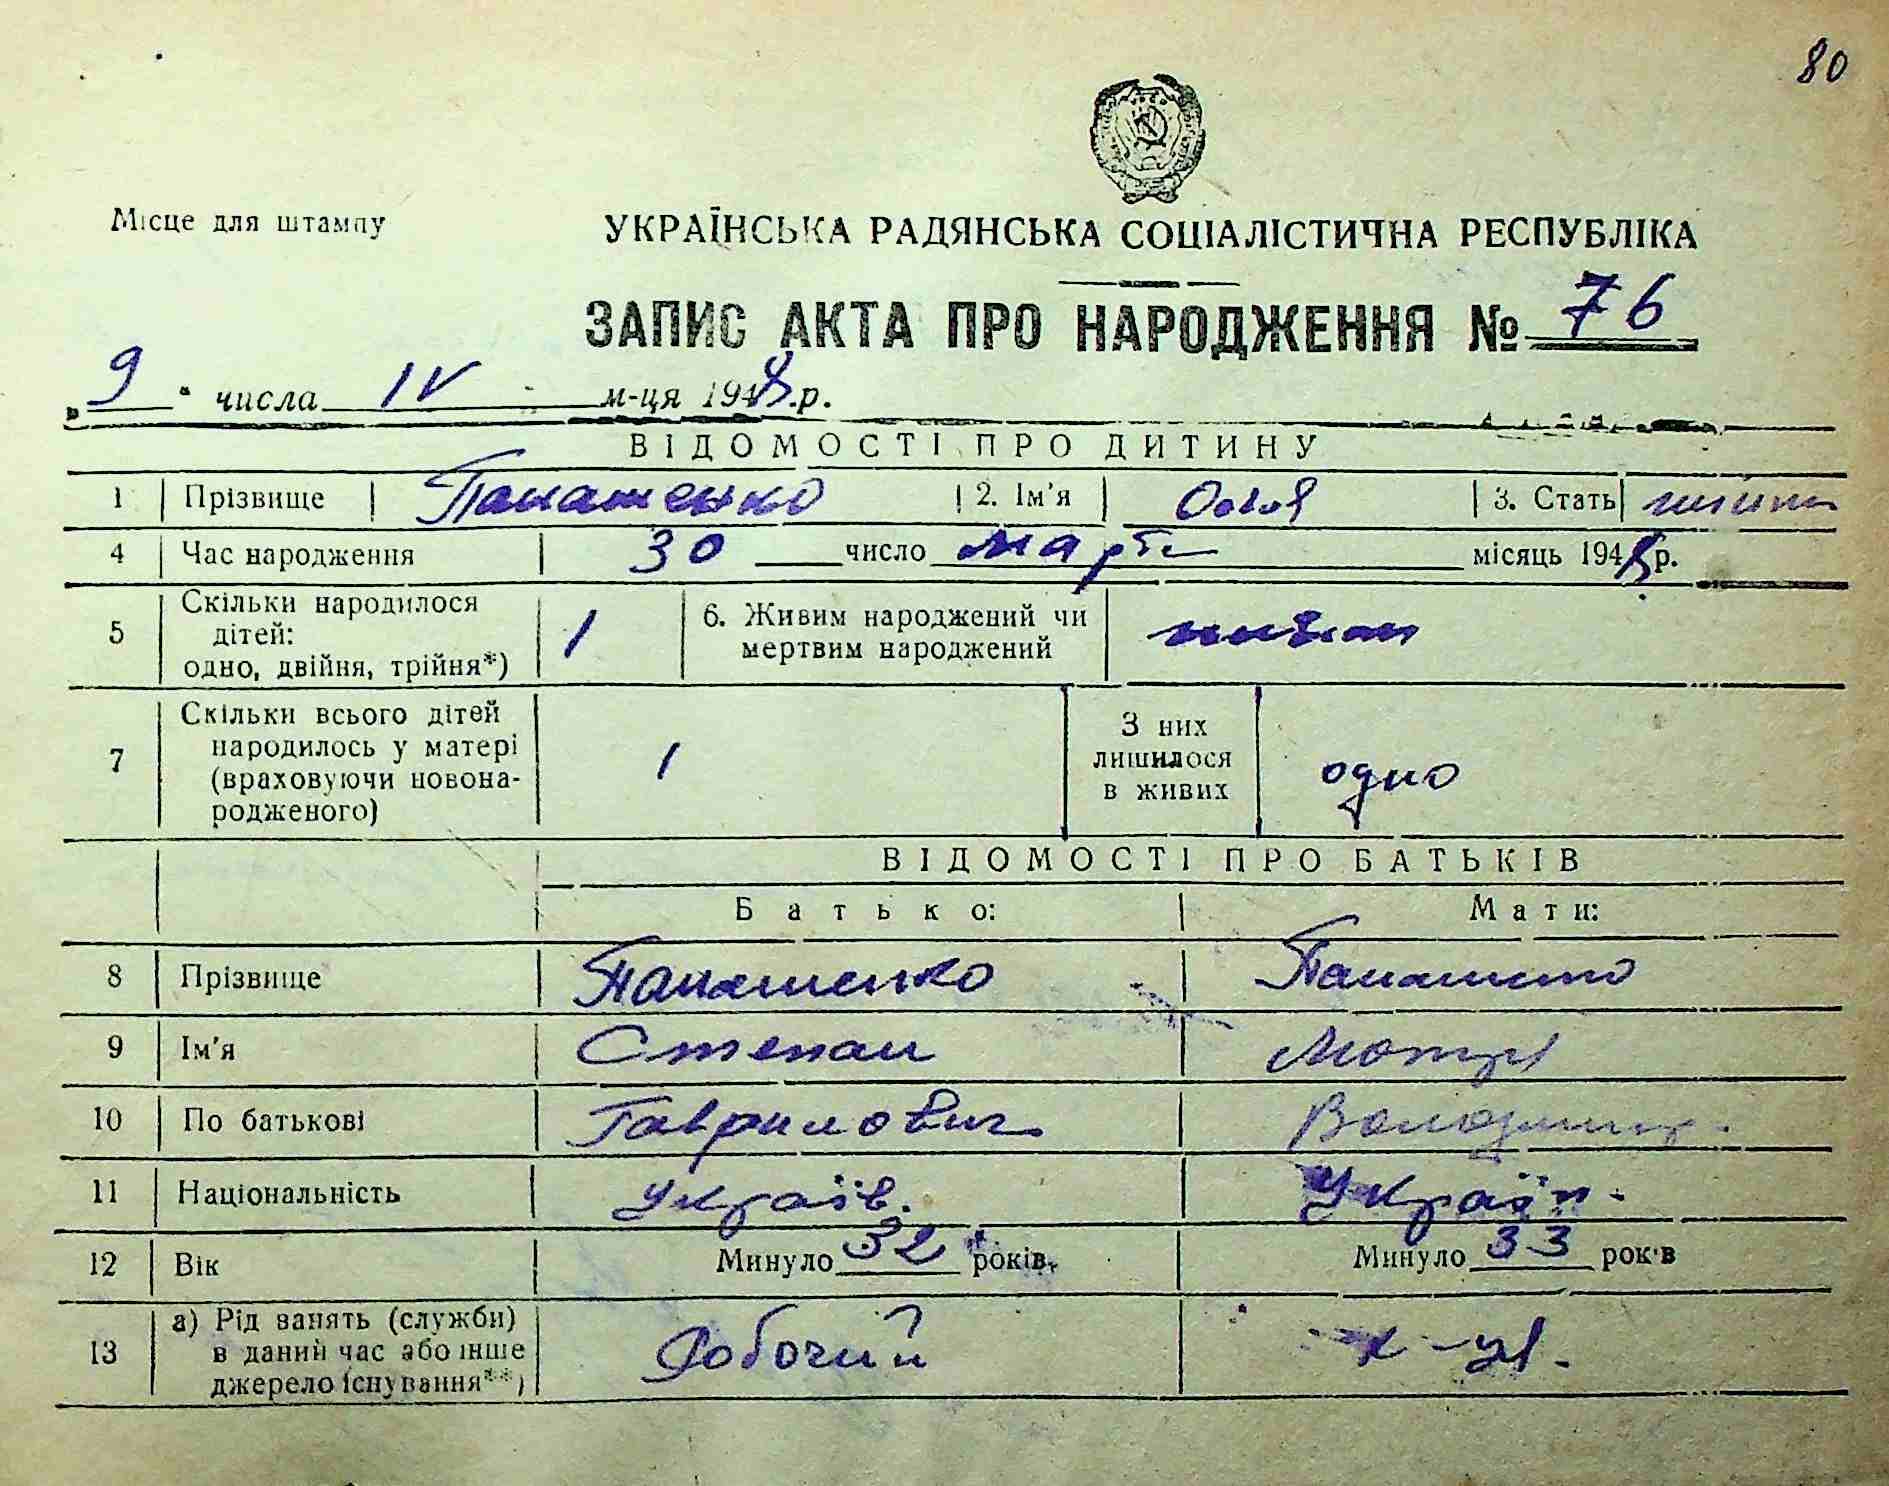 80
Місце для штампу
УКРАЇНСЬКА РАДЯНСЬКА СОЦІАЛІСТИЧНА РЕСПУБЛІКА
ЗАПИС АКТА ПРО НАРОДЖЕННЯ № 76
„9“ числа IV м-ця 1948.р.
ВІДОМОСТІ ПРО ДИТИНУ
1 Прізвище Панашенко 2. Ім'я Ольга 3. Стать
4 Час народження 30 число марта місяць 1948 р.
5 Скільки народилося дітей: одно, двійня, трійня*) 1 6. Живим народжений чи мертвим народжений живим
7 Скільки всього дітей народилось у матері (враховуючи новонародженого) 1 З них лишилося в живих одно
ВІДОМОСТІ ПРО БАТЬКІВ
Батько: Мати:
8 Прізвище Панашенко Панашенко
9 Ім'я Степан Мотря
10 По батькові Гаврилович
11 Національність Україн.
12 Вік Минуло 32 років. Минуло 33 років
13 а) Рід занять (служби) в даний час або інше джерело існування**) Робочий